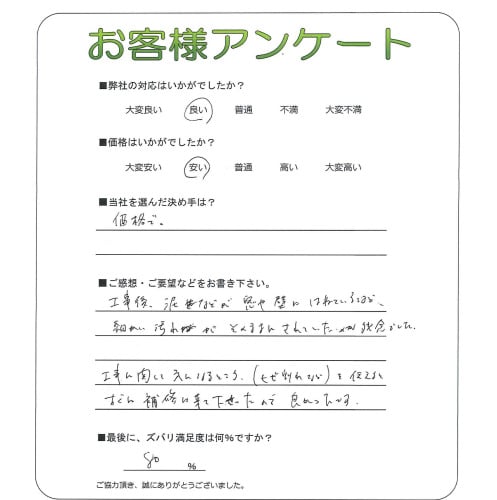 お客様アンケート
■弊社の対応はいかがでしたか？
大変良い 良い 普通 不満 大変不満
■価格はいかがでしたか？
大変安い 安い 普通 高い 大変高い
■当社を選んだ決め手は？
価格で。
■ご感想・ご要望などをお書き下さい。
工事後、泥などが 窓や壁に はねているなど、
細かい汚れ が そのままにされていた が残念でした。
工事に関して気になるところ、(ひび割れなど)を伝えると
すぐに 補修に来て下さったので 良かったです。
■最後に、ズバリ満足度は何％ですか？
80 ％
ご協力頂き、誠にありがとうございました。